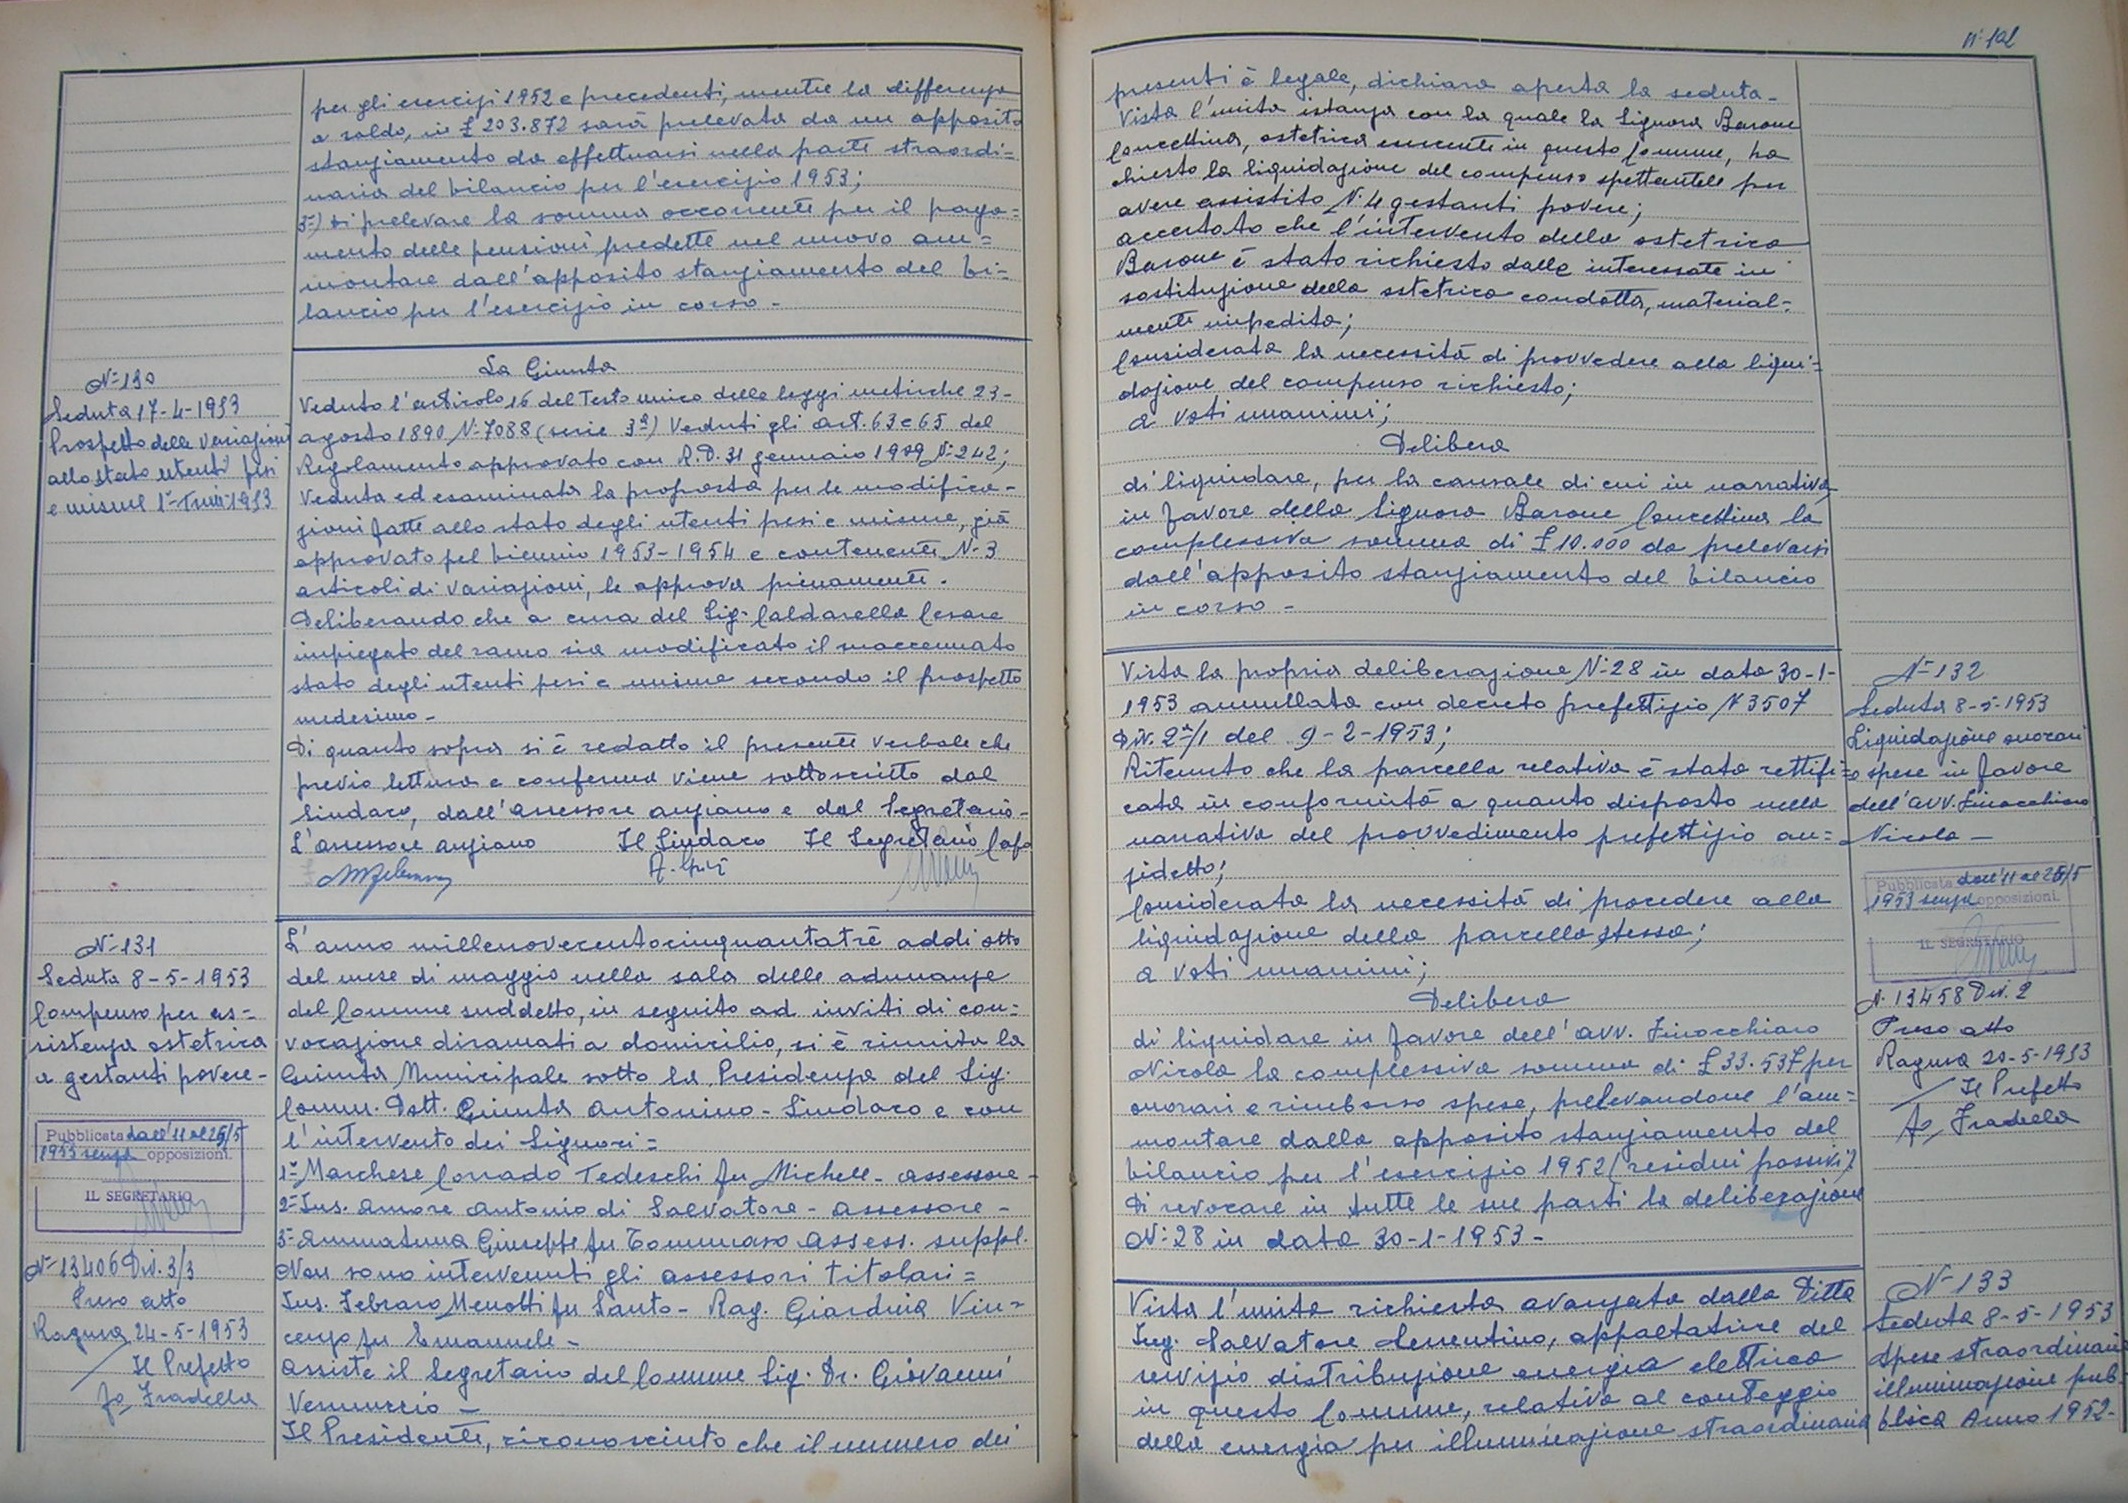 per gli esercizi 1952 e precedenti, mentre la differenza
a saldo, in £ 203.872 sarà prelevata da un apposito
stanziamento da effettuarsi nella parte straordi=
naria del bilancio per l'esercizio 1953;
3°) Di prelevare la somma occorrente per il paga=
mento delle pensioni predette nel nuovo am=
montare dall'apposito stanziamento del bi=
lancio per l'esercizio in corso -
N° 130
Seduta 17-4-1953
Prospetto delle variazioni
allo stato utenti pesi
e misure 1° Trim. 1953
La Giunta
Veduto l'articolo 16 del Testo unico delle leggi metriche 23-
agosto 1890 N. 7088 (serie 3ª) Veduti gli art. 63 e 65 del
Regolamento approvato con R.D. 31 gennaio 1909 N. 242;
Veduta ed esaminata la proposta per le modifica-
zioni fatte allo stato degli utenti pesi e misure, già
approvato pel biennio 1953-1954 e contenente N. 3
articoli di variazioni, le approva pienamente.
Deliberando che a cura del Sig. Caldarella Cesare
impiegato del ramo sia modificato il maccennato
stato degli utenti pesi e misure secondo il prospetto
medesimo -
Di quanto sopra si è redatto il presente verbale che
previo lettura e conferma viene sottoscritto dal
Sindaco, dall'assessore anziano e dal Segretario-
L'assessore anziano Il Sindaco Il Segretario Capo
N° 131
Seduta 8-5-1953
Compenso per as-
sistenza ostetrica
a gestanti povere-
Pubblicata dall'11 al 25/5
1953 senza opposizioni.
IL SEGRETARIO
N° 13406 Div. 3/3
Preso atto
Ragusa 24-5-1953
Il Prefetto
fo Fradella
L'anno millenovecentocinquantatrè addì otto
del mese di maggio nella sala delle adunanze
del Comune suddetto, in seguito ad inviti di con=
vocazione diramati a domicilio, si è riunita la
Giunta Municipale sotto la Presidenza del Sig.
Comm. Dott. Giunta Antonino - Sindaco e con
l'intervento dei Signori=
1° Marchese Corrado Tedeschi fu Michele - assessore-
2° Ins. Amore Antonio di Salvatore - assessore-
3° Ammatuna Giuseppe fu Tommaso assess. suppl.
Non sono intervenuti gli assessori titolari=
Ins. Febraro Menotti fu Santo - Rag. Giardina Vin=
cenzo fu Emanuele -
assiste il Segretario del Comune Sig. Dr. Giovanni
Vennuccio -
Il Presidente, riconosciuto che il numero dei
presenti è legale, dichiara aperta la seduta-
Vista l'unita istanza con la quale la Signora Barone
Concettina, ostetrica esercente in questo Comune, ha
chiesto la liquidazione del compenso spettantele per
avere assistito N. 4 gestanti povere;
accertato che l'intervento della ostetrica
Barone è stato richiesto dalle interessate in
sostituzione della ostetrica condotta, material=
mente impedita;
Considerata la necessità di provvedere alla liqui=
dazione del compenso richiesto;
a voti unanimi;
Delibera
di liquidare, per la causale di cui in narrativa,
in favore della Signora Barone Concettina la
complessiva somma di £ 10.000 da prelevarsi
dall'apposito stanziamento del bilancio
in corso -
Vista la propria deliberazione N. 28 in data 30-1-
1953 annullata con decreto prefettizio N 3507
Div. 2ª/1 del 9-2-1953;
Ritenuto che la parcella relativa è stata rettifi=
cata in conformità a quanto disposto nella
narrativa del provvedimento prefettizio an=
zidetto;
Considerata la necessità di procedere alla
liquidazione della parcella stessa;
a voti unanimi;
Delibera
di liquidare in favore dell'avv. Finocchiaro
Nicola la complessiva somma di £ 33.537 per
onorari e rimborso spese, prelevandone l'am=
montare dallo apposito stanziamento del
bilancio per l'esercizio 1952 (residui passivi).
Di revocare in tutte le sue parti la deliberazione
N. 28 in data 30-1-1953-
N° 132
Seduta 8-5-1953
Liquidazione onorari
e spese in favore
dell'avv. Finocchiaro
Nicola -
Pubblicata dall'11 al 25/5
1953 senza opposizioni.
IL SEGRETARIO
N. 13458 Div. 2
Preso atto
Ragusa 20-5-1953
Il Prefetto
fo Fradella
Vista l'unita richiesta avanzata dalla Ditta
Ing. Salvatore Clementino, appaltatrice del
servizio distribuzione energia elettrica
in questo Comune, relativa al conteggio
della energia per illuminazione straordinaria
N° 133
Seduta 8-5-1953
Spese straordinarie
illuminazione pub-
blica Anno 1952-